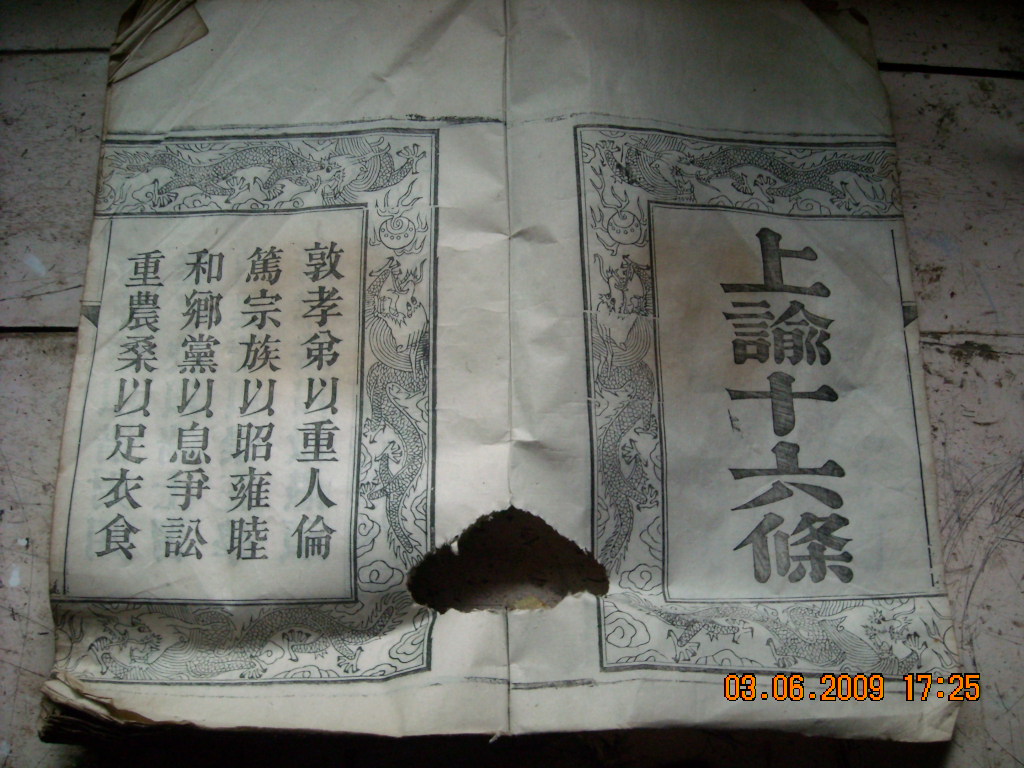 上諭十六條
敦孝弟以重人倫
篤宗族以昭雍睦
和鄉黨以息爭訟
重農桑以足衣食
03.06.2009 17:25